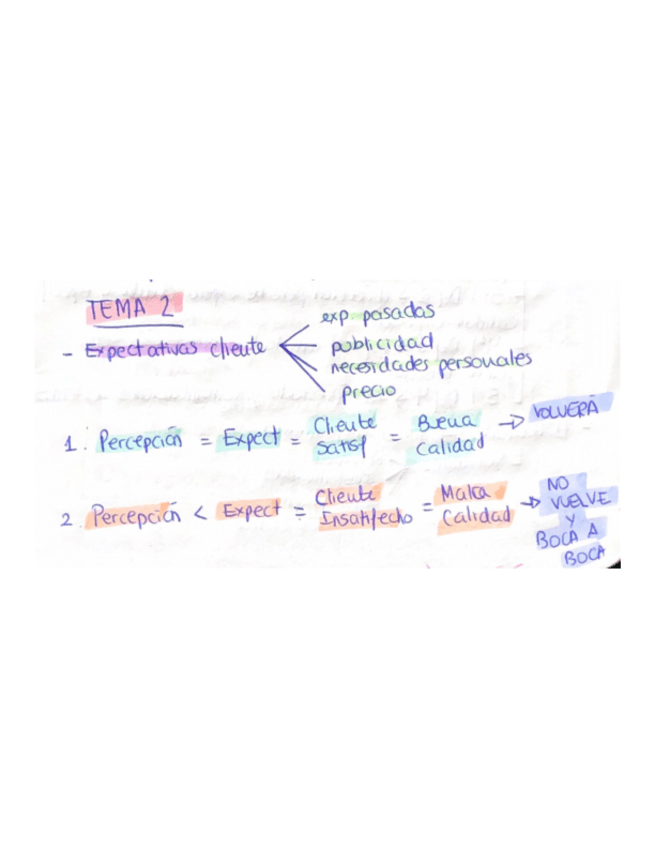 TEMA 2
- Expectativas cliente
exp. pasadas
publicidad
necesidades personales
precio
1. Percepción = Expect = Cliente Satisf = Buena Calidad → VOLVERÁ
2. Percepción < Expect = Cliente Insatifecho = Mala Calidad → NO VUELVE Y BOCA A BOCA